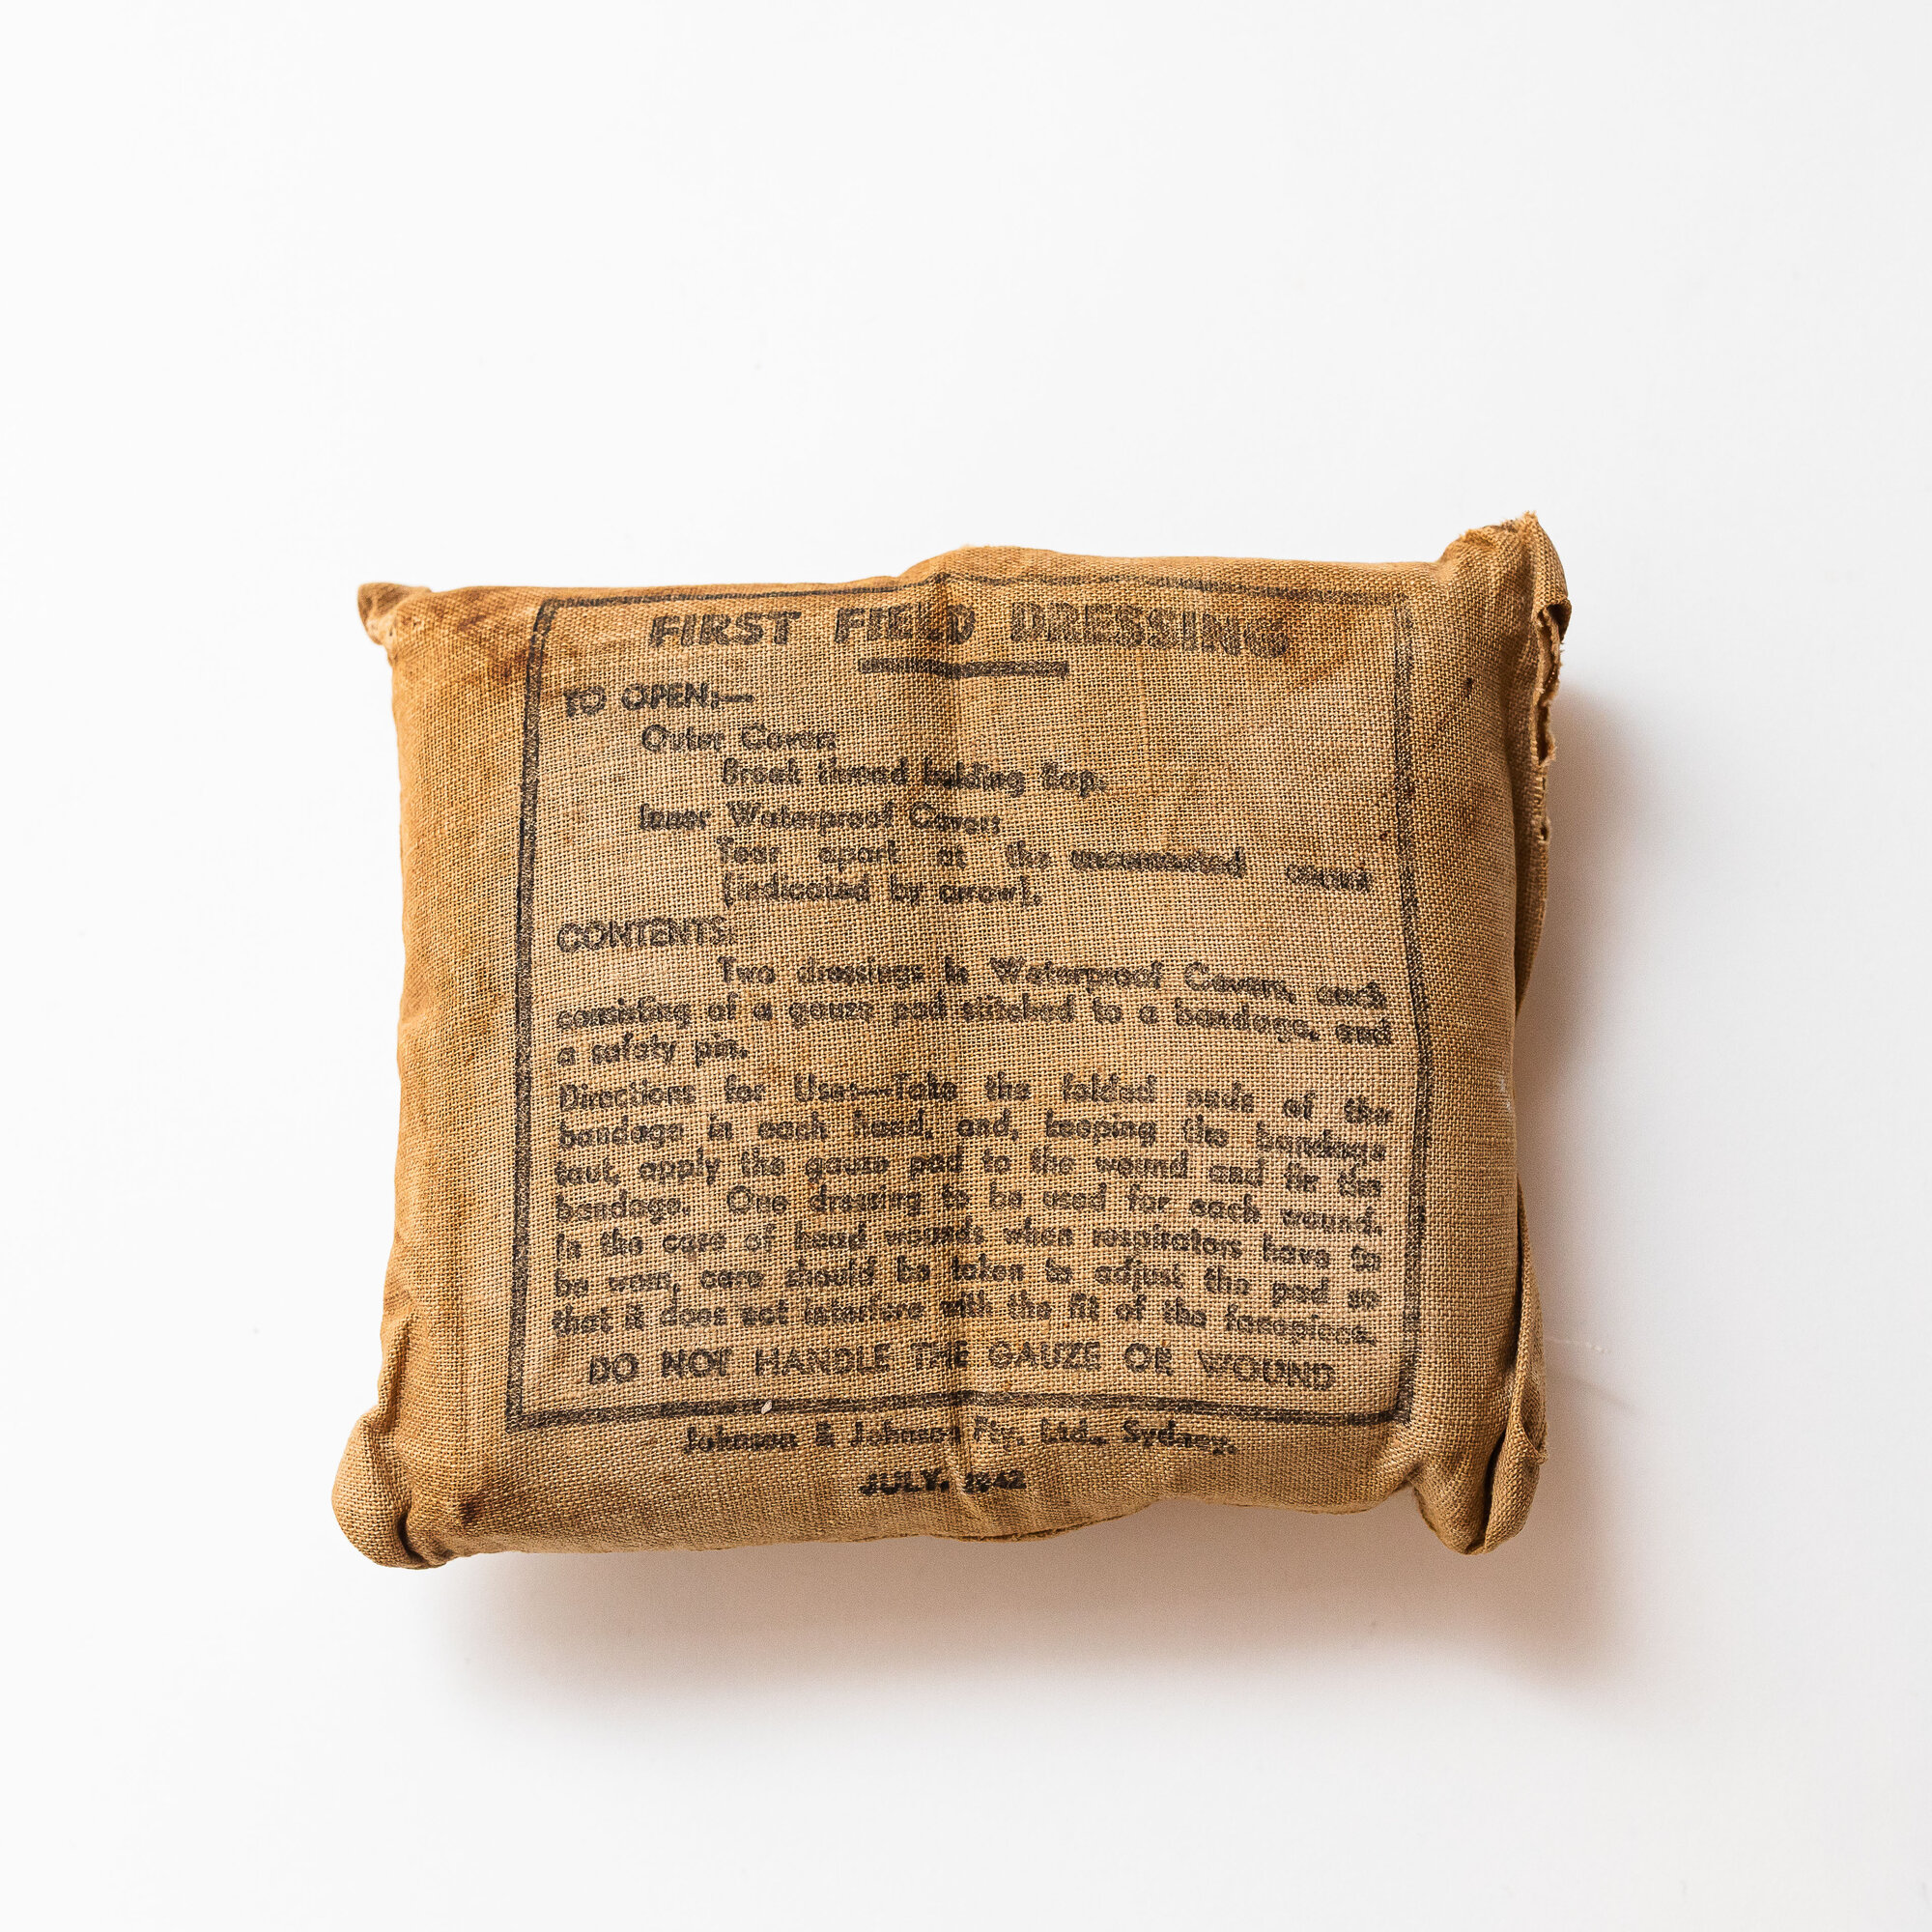 FIRST FIELD DRESSING
TO OPEN:—
Outer Cover:
Break thread holding flap.
Inner Waterproof Cover:
Tear apart at the uncemented corner
(indicated by arrow).
CONTENTS.
Two dressings in Waterproof Covers, each
consisting of a gauze pad stitched to a bandage, and
a safety pin.
Directions for Use:—Take the folded ends of the
bandage in each hand, and, keeping the bandage
taut, apply the gauze pad to the wound and fix the
bandage. One dressing to be used for each wound.
In the case of head wounds when respirators have to
be worn, care should be taken to adjust the pad so
that it does not interfere with the fit of the facepiece.
DO NOT HANDLE THE GAUZE OR WOUND
Johnson & Johnson Pty. Ltd., Sydney.
JULY, 1942